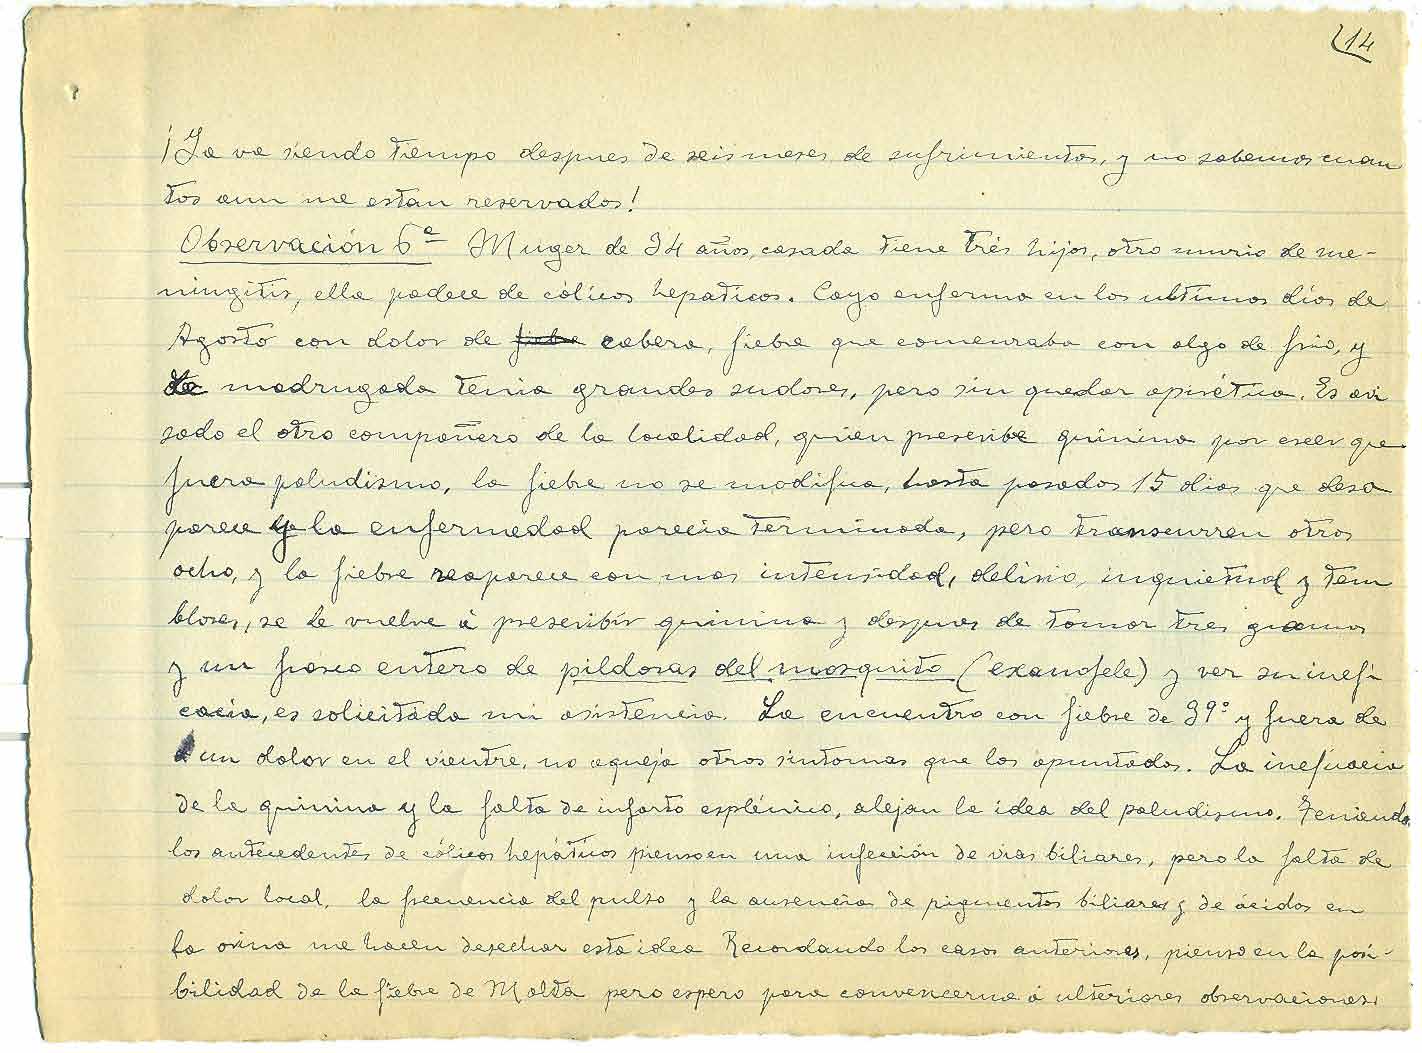 14
¡Ya va siendo tiempo despues de seis meses de sufrimientos, y no sabemos cuan
tos aun me estan reservados!
Observación 6ª Muger de 34 años, casada tiene trés hijos, otro murio de me-
ningitis, ella padece de cólicos hepaticos. Cayo enferma en los ultimos días de
Agosto con dolor de fiebre cabeza, fiebre que comenzaba con algo de frio, y
de madrugada tenia grandes sudores, pero sin quedar apirética. Es avi
sado el otro compañero de la localidad, quien prescribe quinina por creer que
fuera paludismo, la fiebre no se modifica, hasta pasados 15 dias que desa
parece y la enfermedad parecia terminada, pero transcurren otros
ocho, y la fiebre reaparece con mas intensidad, delirio, inquietud y tem
blores, se le vuelve á prescribir quinina y despues de tomar tres gramos
y un frasco entero de pildoras del mosquito (exanofele) y ver su inefi
cacia, es solicitada mi asistencia. La encuentro con fiebre de 39º y fuera de
un dolor en el vientre, no aqueja otros sintomas que los apuntados. La ineficacia
de la quinina y la falta de infarto esplénico, alejan la idea del paludismo. Teniendo
los antecedentes de cólicos hepáticos pienso en una infección de vias biliares, pero la falta de
dolor local, la frecuencia del pulso y la ausencia de pigmentos biliares y de ácidos en
la orina me hacen desechar esta idea Recordando los casos anteriores, pienso en la posi-
bilidad de la fiebre de Malta pero espero para convencerme á ulteriores observaciones.